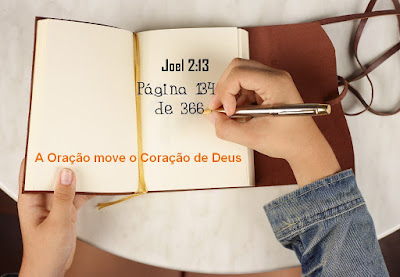 Joel 2:13
Página 134
de 366
A Oração move o Coração de Deus